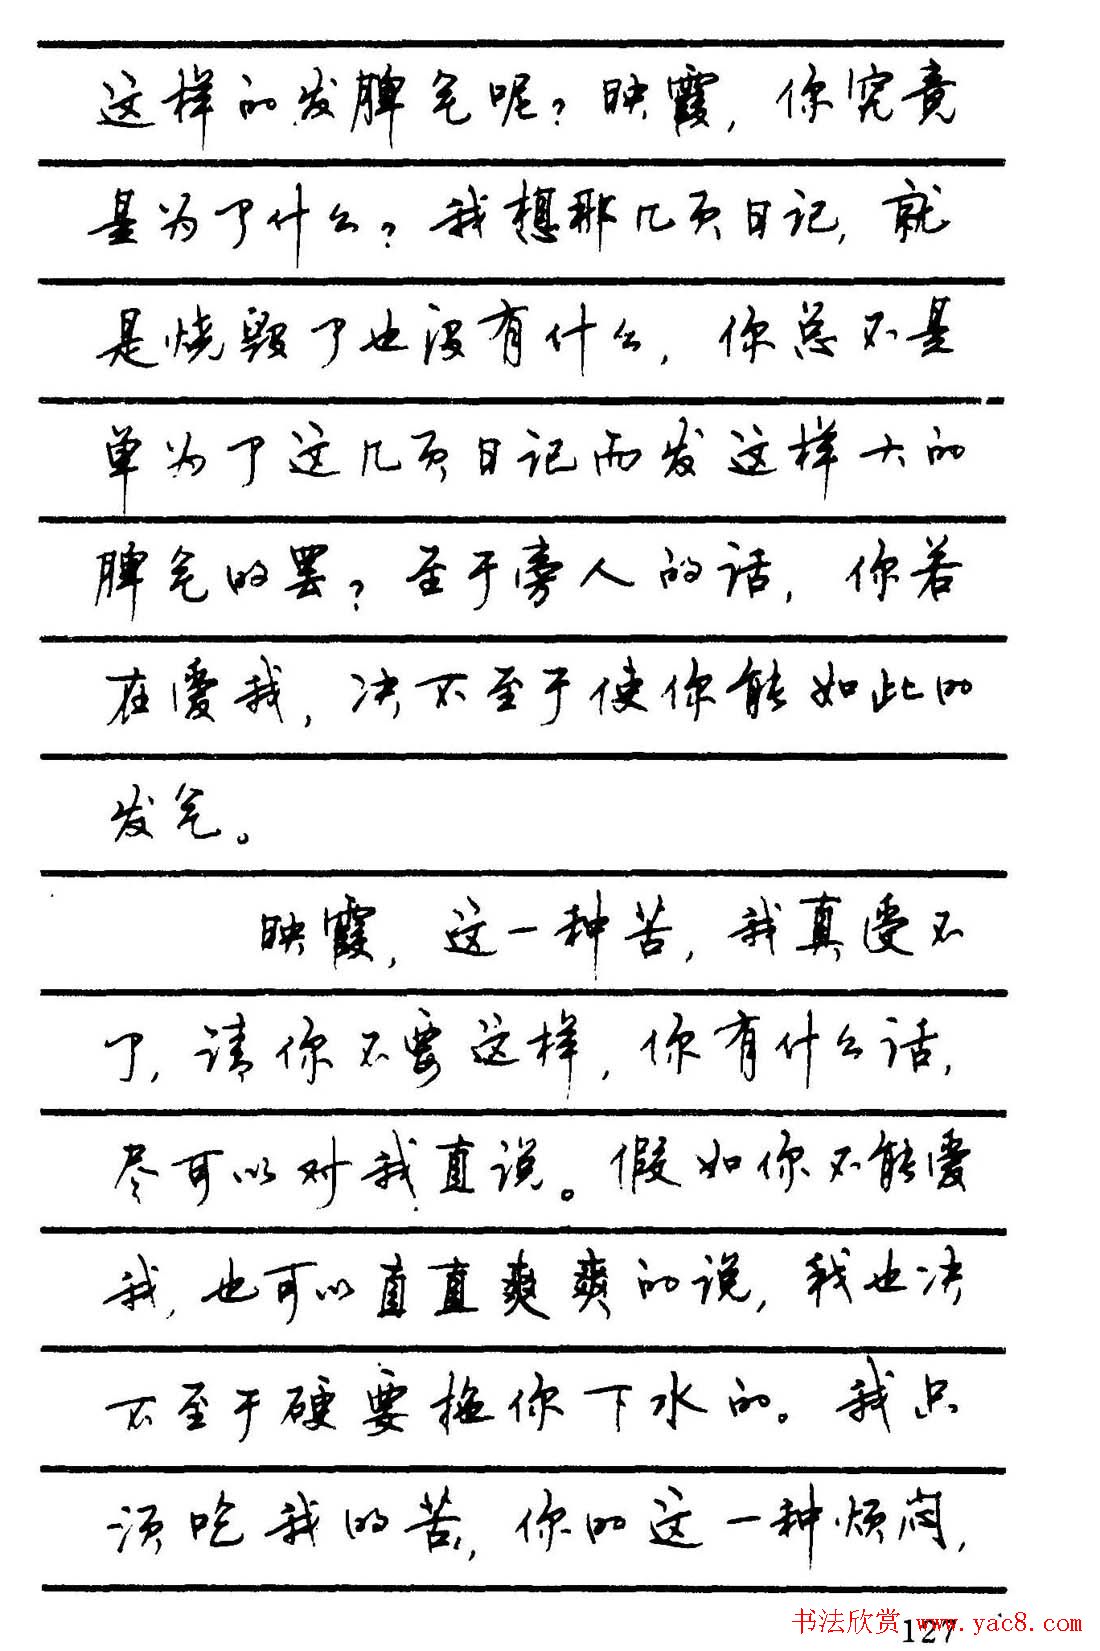 这样的发脾气呢？映霞，你究竟
是为了什么？我想那几页日记，就
是烧毁了也没有什么，你总不是
单为了这几页日记而发这样大的
脾气的罢？至于旁人的话，你若
在爱我，决不至于使你能如此的
发气。
映霞，这一种苦，我真受不
了，请你不要这样，你有什么话，
尽可以对我直说。假如你不能爱
我，也可以直直爽爽的说，我也决
不至于硬要拖你下水的。我只
须吃我的苦，你的这一种烦闷，
127
书法欣赏 www.yac8.com